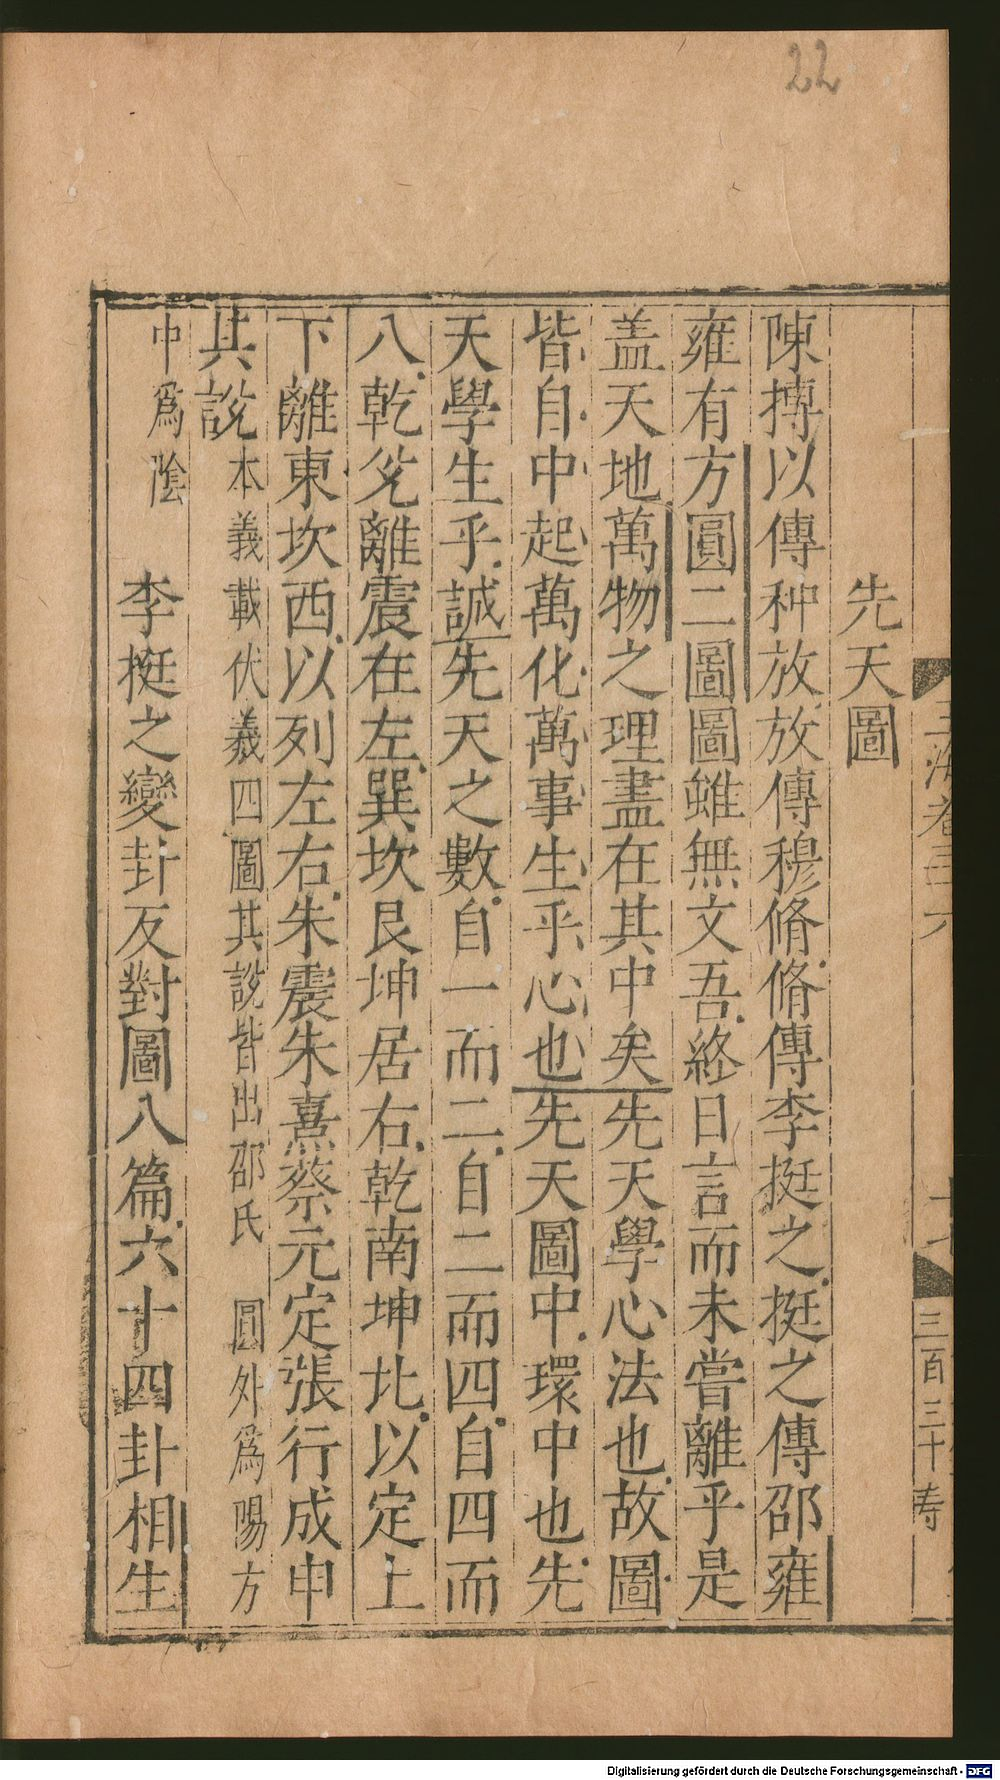 22
先天圖
陳摶以傳种放放傳穆脩脩傳李挺之挺之傳邵雍
雍有方圓二圖圖雖無文吾終日言而未嘗離乎是
盖天地萬物之理盡在其中矣先天學心法也故圖
皆自中起萬化萬事生乎心也先天圖中環中也先
天學生乎誠先天之數自一而二自二而四自四而
八乾兊離震在左巽坎艮坤居右乾南坤北以定上
下離東坎西以列左右朱震朱熹蔡元定張行成申
其說本義載伏羲四圖其說皆出邵氏 圓外為陽方
中為陰
李挺之變卦反對圖八篇六十四卦相生
玉海卷三十六
三百三十 寿
Digitalisierung gefördert durch die Deutsche Forschungsgemeinschaft - DFG